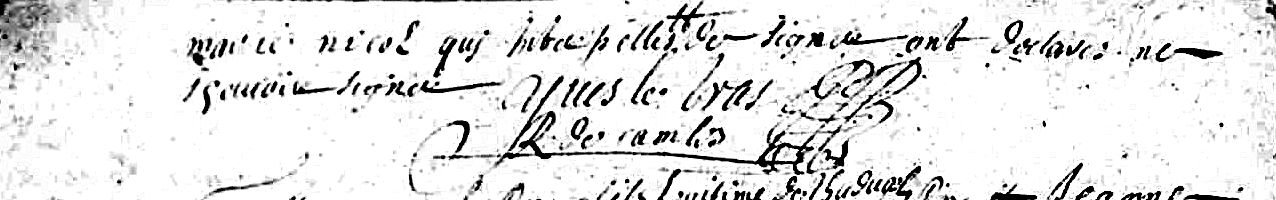 marie nicol qui interpellés de signer ont declarés ne
sçavoir signer yues le bras
R de camles
fils legitime de et Jeanne